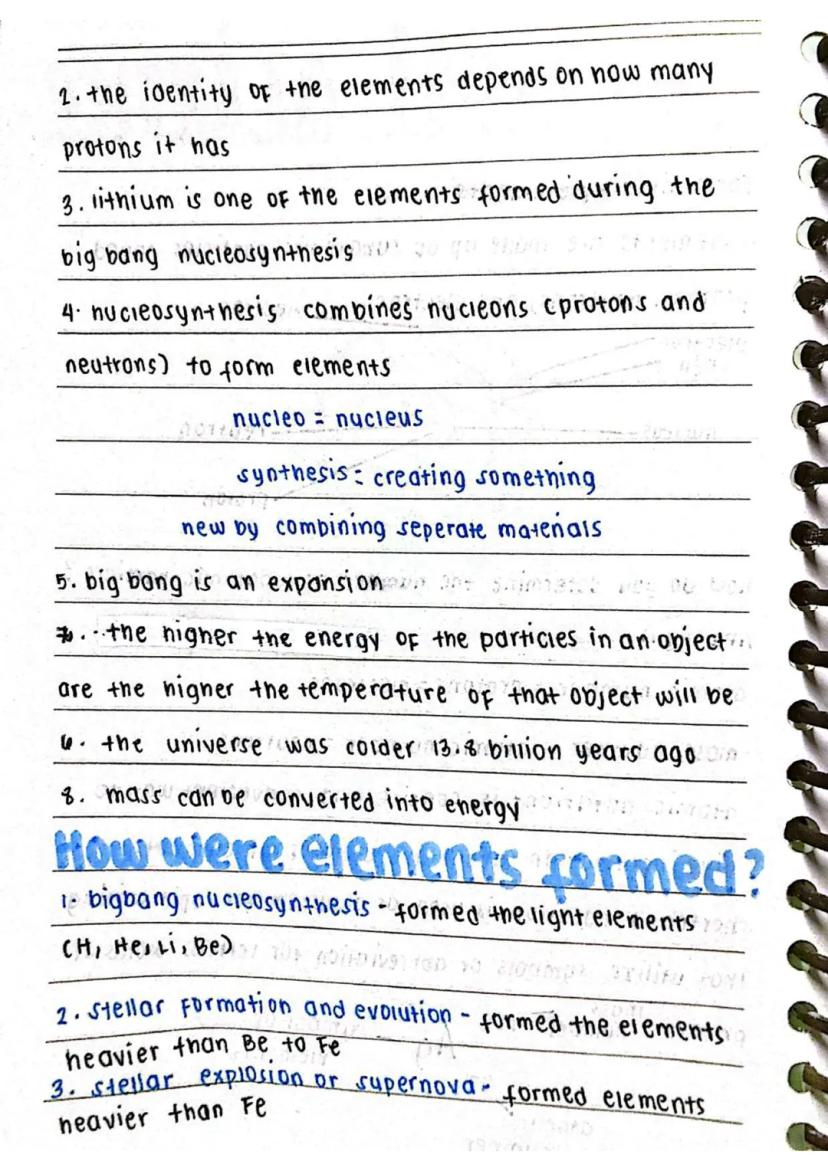 2. the identity of the elements depends on how many
protons it has
3. lithium is one of the elements formed during the
big bang nucleosynthesis
4. nucleosynthesis combines nucleons (protons and
neutrons) to form elements
nucleo = nucleus
synthesis = creating something
new by combining seperate materials
5. big bang is an expansion
7. the higher the energy of the particles in an object
are the higher the temperature of that object will be
6. the universe was colder 13.8 billion years ago
8. mass can be converted into energy
How were elements formed?
1. bigbang nucleosynthesis - formed the light elements
(H, He, Li, Be)
2. stellar formation and evolution - formed the elements
heavier than Be to Fe
3. stellar explosion or supernova - formed elements
heavier than Fe